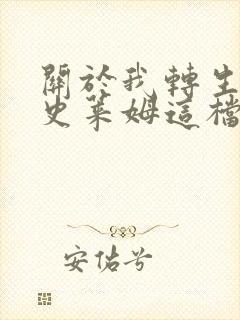 關於我轉生
史萊姆這檔
安佑兮